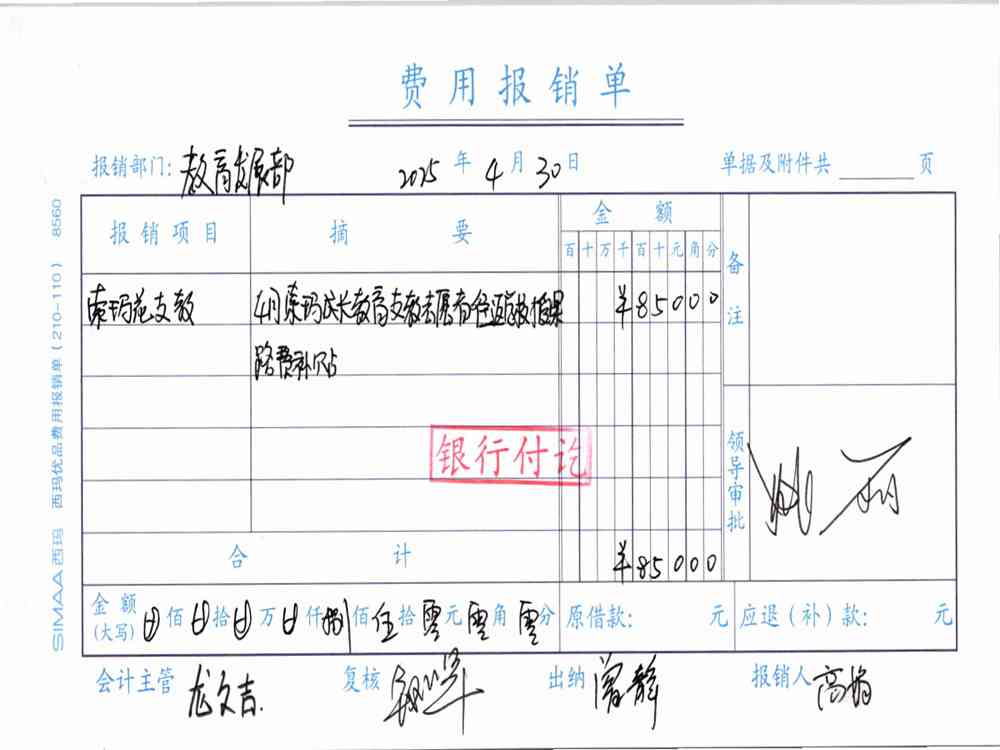 费用报销单
报销部门: 教育发展部 2025 年 4 月 30 日 单据及附件共 页
报销项目 摘要 金额 备注
百 十 万 千 百 十 元 角 分
索玛花支教 4月索玛成长教育支教志愿者
路费补贴 ¥85000
银行付讫
领导审批
合计 ¥85000
金额(大写) 佰 拾 万 仟 捌 佰 伍 拾 零 元 零 角 零 分 原借款: 元 应退(补)款: 元
会计主管 龙文吉 复核 出纳 曾静 报销人 高娟
SIMAA西玛 西玛优品费用报销单(210-110) 8560